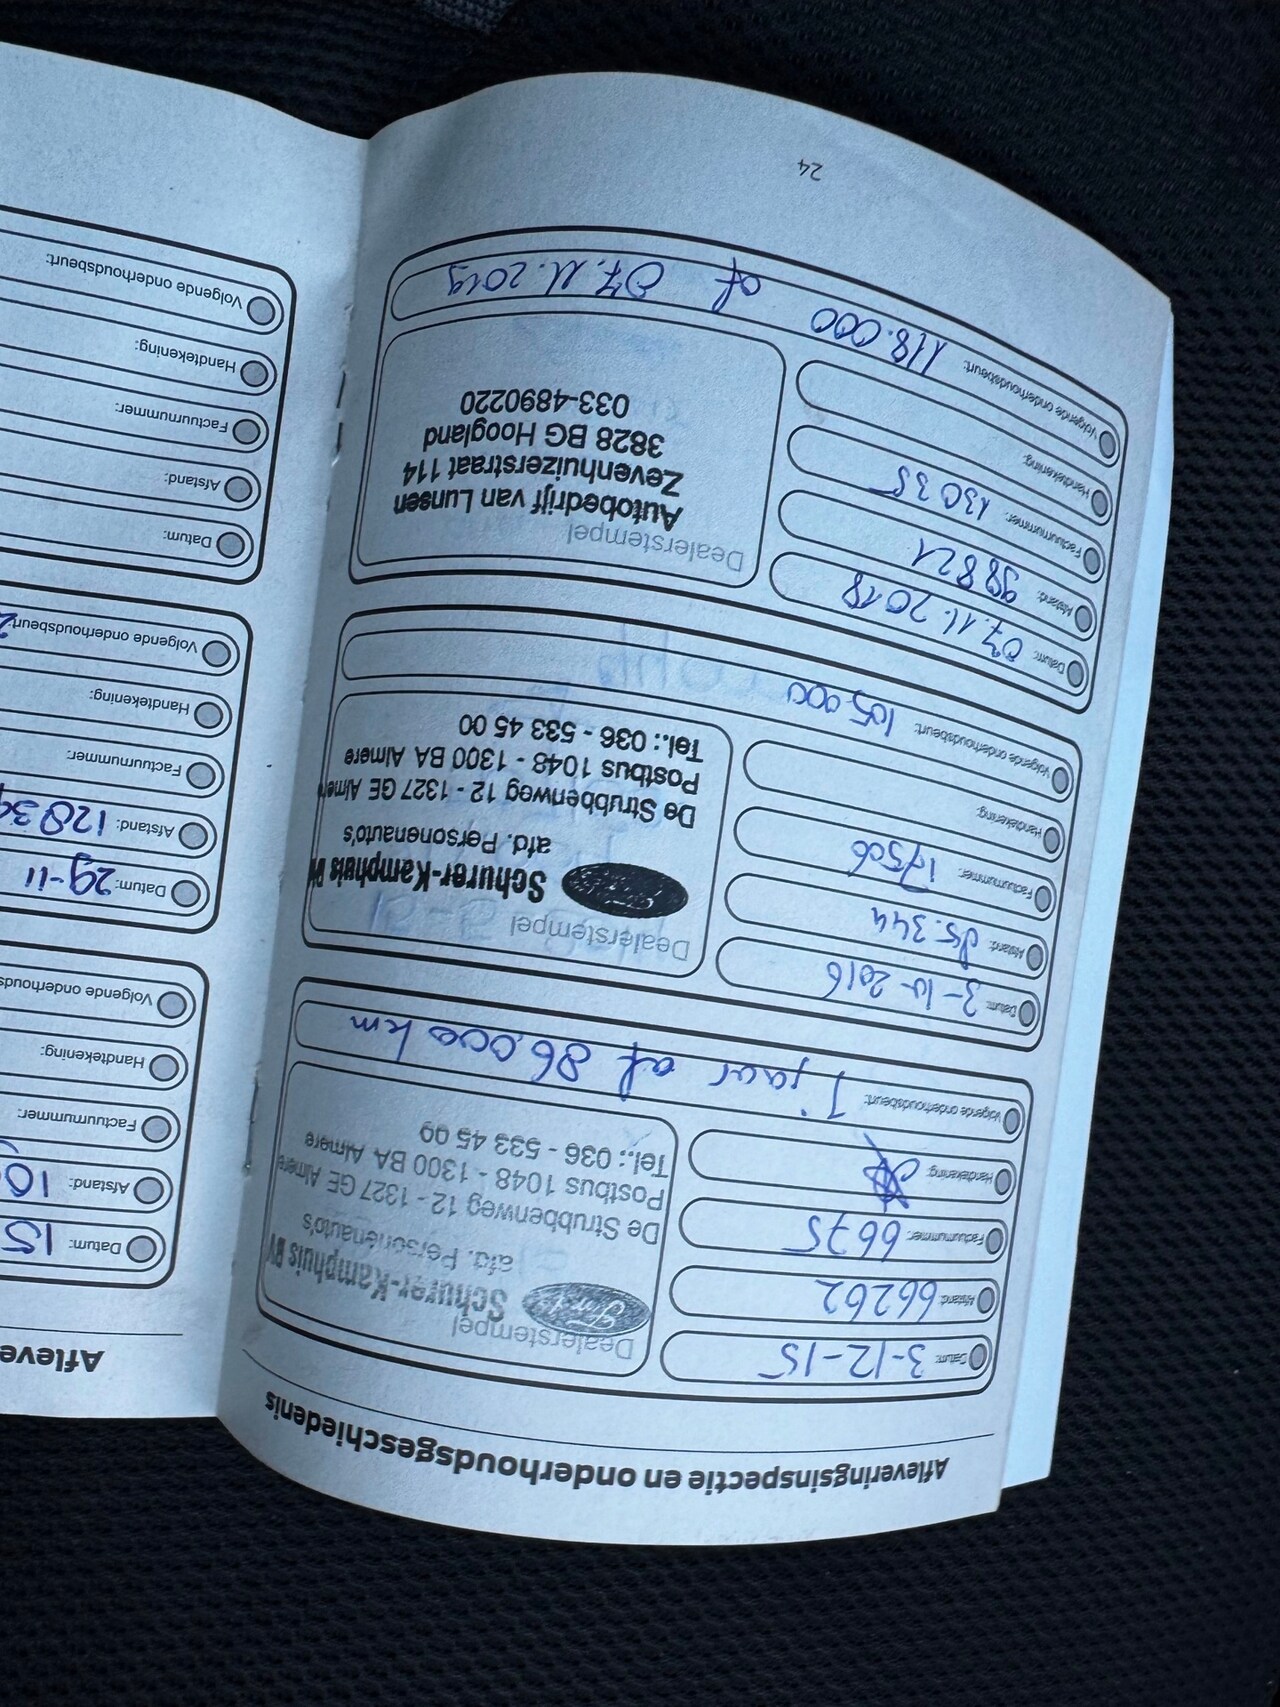 Afleveringsinspectie en onderhoudsgeschiedenis
Datum: 3-12-15
Afstand: 66262
Factuurnummer: 6675
Handtekening:
Volgende onderhoudsbeurt: 1 jaar of 86.000 km
Dealerstempel
Ford
Schurer-Kamphuis BV
afd. Personenauto's
De Strubbenweg 12 - 1327 GE Almere
Postbus 1048 - 1300 BA Almere
Tel.: 036 - 533 45 00
Datum: 3-10-2016
Afstand: 85.344
Factuurnummer: 17506
Handtekening:
Volgende onderhoudsbeurt: 105.000
Dealerstempel
Schurer-Kamphuis BV
afd. Personenauto's
De Strubbenweg 12 - 1327 GE Almere
Postbus 1048 - 1300 BA Almere
Tel.: 036 - 533 45 00
Datum: 07.11.2018
Afstand: 98821
Factuurnummer: 13035
Handtekening:
Volgende onderhoudsbeurt: 118.000 of 07.11.2019
Dealerstempel
Autobedrijf van Lunsen
Zevenhuizerstraat 114
3828 BG Hoogland
033-4890220
24
Afleve
Datum: 15
Afstand: 10
Factuurnummer:
Handtekening:
Volgende onderhouds
Datum: 29-11
Afstand: 12839
Factuurnummer:
Handtekening:
Volgende onderhoudsbeurt:
Datum:
Afstand:
Factuurnummer:
Handtekening:
Volgende onderhoudsbeurt: